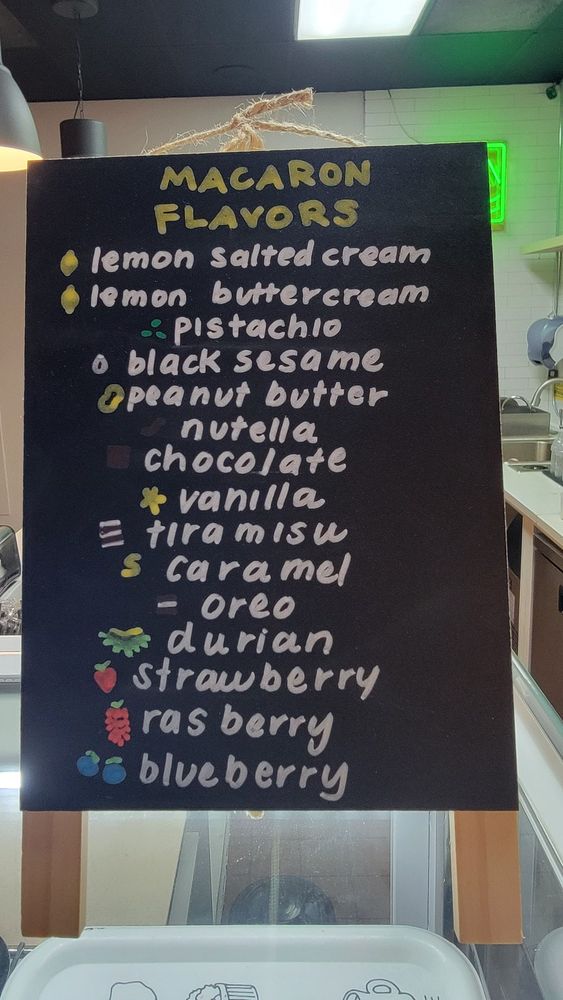 MACARON
FLAVORS
lemon salted cream
lemon buttercream
pistachio
black sesame
peanut butter
nutella
chocolate
vanilla
tiramisu
caramel
oreo
durian
strawberry
rasberry
blueberry